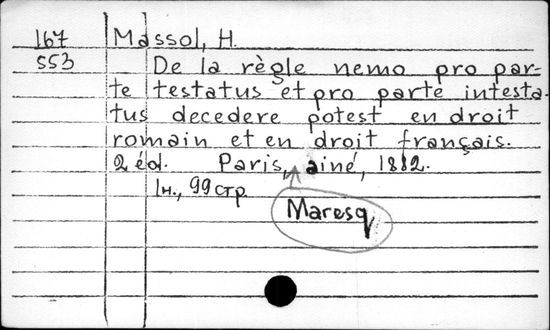 167 Massol, H.
553 De la règle nemo pro par-
te testatus et pro parte intesta-
tus decedere potest en droit
romain et en droit français.
2 éd. Paris, ainé, 1882.
1н., 99 стр
Maresq